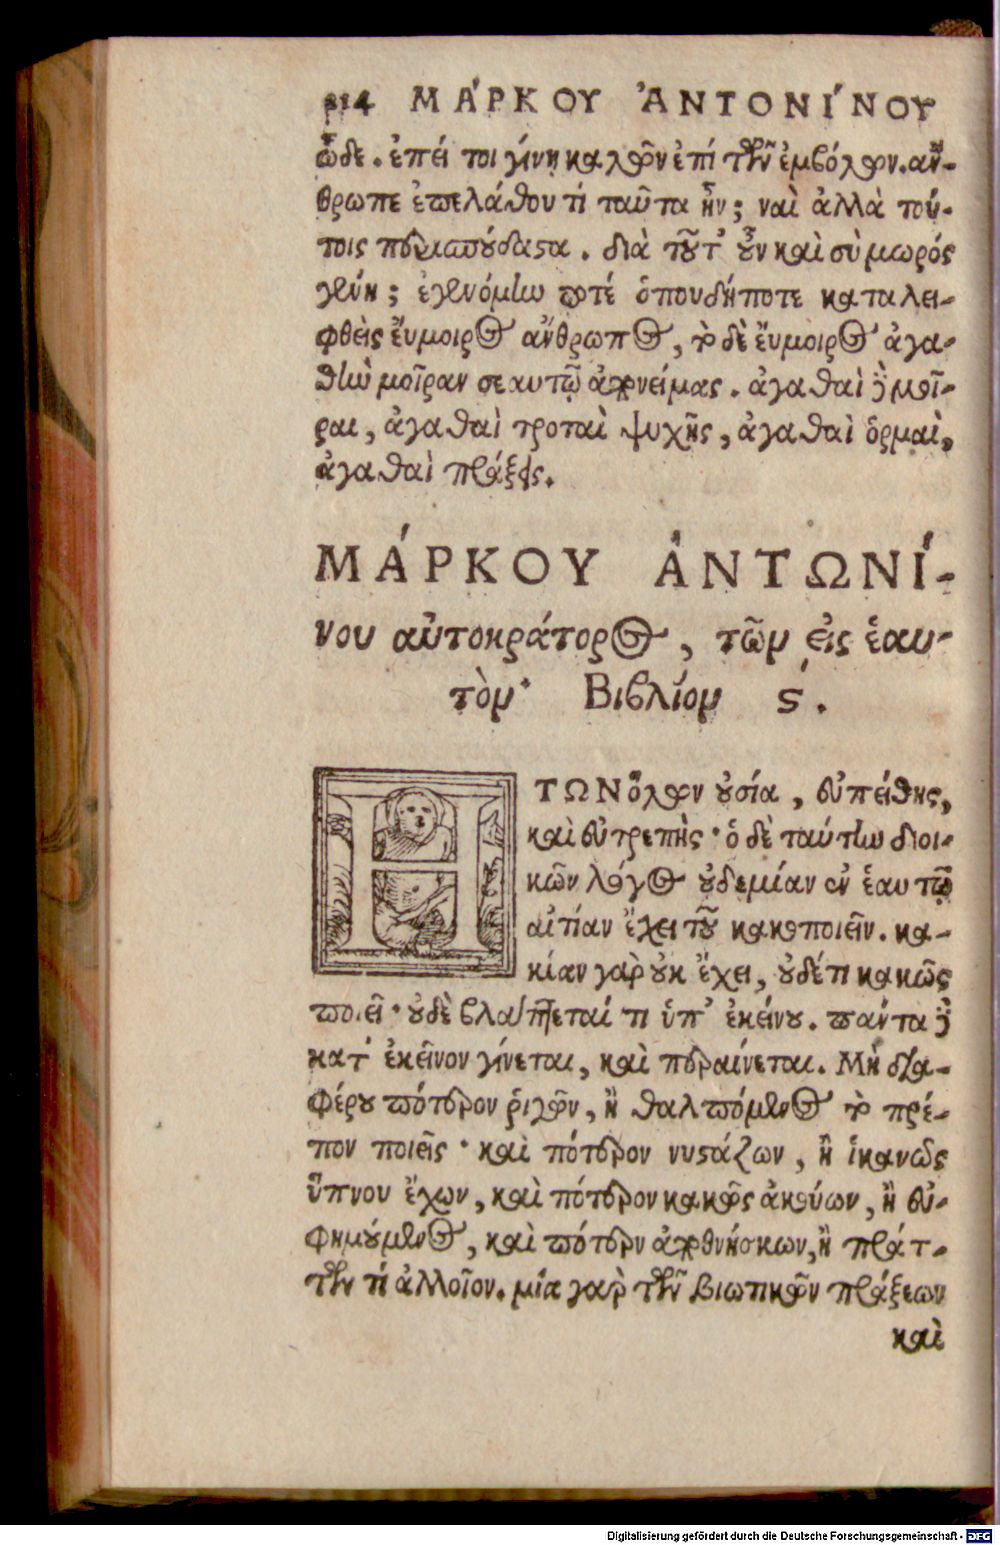 214 ΜΆΡΚΟΥ ἈΝΤΟΝΊΝΟΥ
ὧδε. ἐπεί τοι γίνῃ καλῶν ἐπὶ τῶν ἐμβόλων. ἄν-
θρωπε ἐπελάθου τί ταῦτα ἦν; ναὶ ἀλλὰ τού-
τοις περισπούδαστα. διὰ τοῦτ' οὖν καὶ σὺ μωρός
γένῃ; ἐγενόμην ποτέ ὁπουδήποτε καταλει-
φθεὶς εὔμοιρος ἄνθρωπος, τὸ δὲ εὔμοιρος ἀγα-
θὴν μοῖραν σεαυτῷ ἀπονείμας. ἀγαθαὶ δὲ μοῖ-
ραι, ἀγαθαὶ τροπαὶ ψυχῆς, ἀγαθαὶ ὁρμαὶ,
ἀγαθαὶ πράξεις.
ΜΆΡΚΟΥ ἈΝΤΩΝΊ-
νου αὐτοκράτορος, τῶν εἰς ἑαυ-
τὸν· Βιβλίον ϛ'.
Η ΤΩΝ ὅλων οὐσία, εὐπειθὴς,
καὶ εὐτρεπὴς· ὁ δὲ ταύτην διοι-
κῶν λόγος οὐδεμίαν ἐν ἑαυτῷ
αἰτίαν ἔχει τοῦ κακοποιεῖν. κα-
κίαν γὰρ οὐκ ἔχει, οὐδέ τι κακῶς
ποιεῖ· οὐδὲ βλάπτεταί τι ὑπ' ἐκείνου. πάντα δὲ
κατ' ἐκεῖνον γίνεται, καὶ περαίνεται. Μὴ δια-
φέρου πότερον ῥιγῶν, ἢ θαλπόμενος τὸ πρέ-
πον ποιεῖς· καὶ πότερον νυστάζων, ἢ ἱκανῶς
ὕπνου ἔχων, καὶ πότερον κακῶς ἀκούων, ἢ εὐ-
φημούμενος, καὶ πότερον ἀποθνήσκων, ἢ πράτ-
των τί ἀλλοῖον. μία γὰρ τῶν βιωτικῶν πράξεων
καὶ
Digitalisierung gefördert durch die Deutsche Forschungsgemeinschaft - DFG